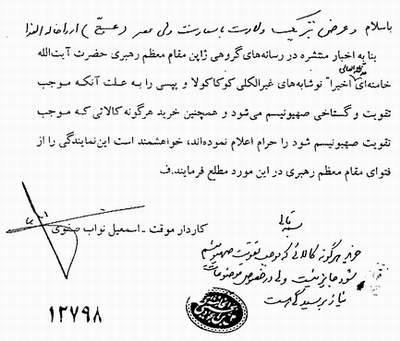 باسلام و عرض تبریک ولادت با سعادت ولی عصر (عج) ارواحنا له الفدا
بنا به اخبار منتشره در رسانه‌های گروهی ژاپن مقام معظم رهبری حضرت آیت‌الله
مدظله‌العالی
خامنه‌ای اخیرا" نوشابه‌های غیرالکلی کوکاکولا و پپسی را به علت آنکه موجب
تقویت و گستاخی صهیونیسم می‌شود و همچنین خرید هرگونه کالائی که موجب
تقویت صهیونیسم شود را حرام اعلام نموده‌اند، خواهشمند است این‌نمایندگی را از
فتوای مقام معظم رهبری در این مورد مطلع فرمایند.ف
کاردار موقت - اسمعیل نواب صفوی
بسمه تعالی
خرید هرگونه کالائی که موجب تقویت صهیونیسم
شود جایز نیست ولی در خصوص موضوعات
نیاز بررسیدگی است
۱۲۷۹۸